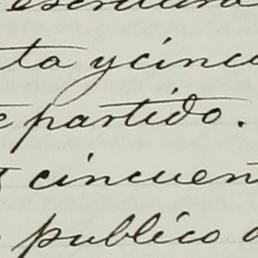 escritura
ta y cinc
e partido.
cincuen
publico